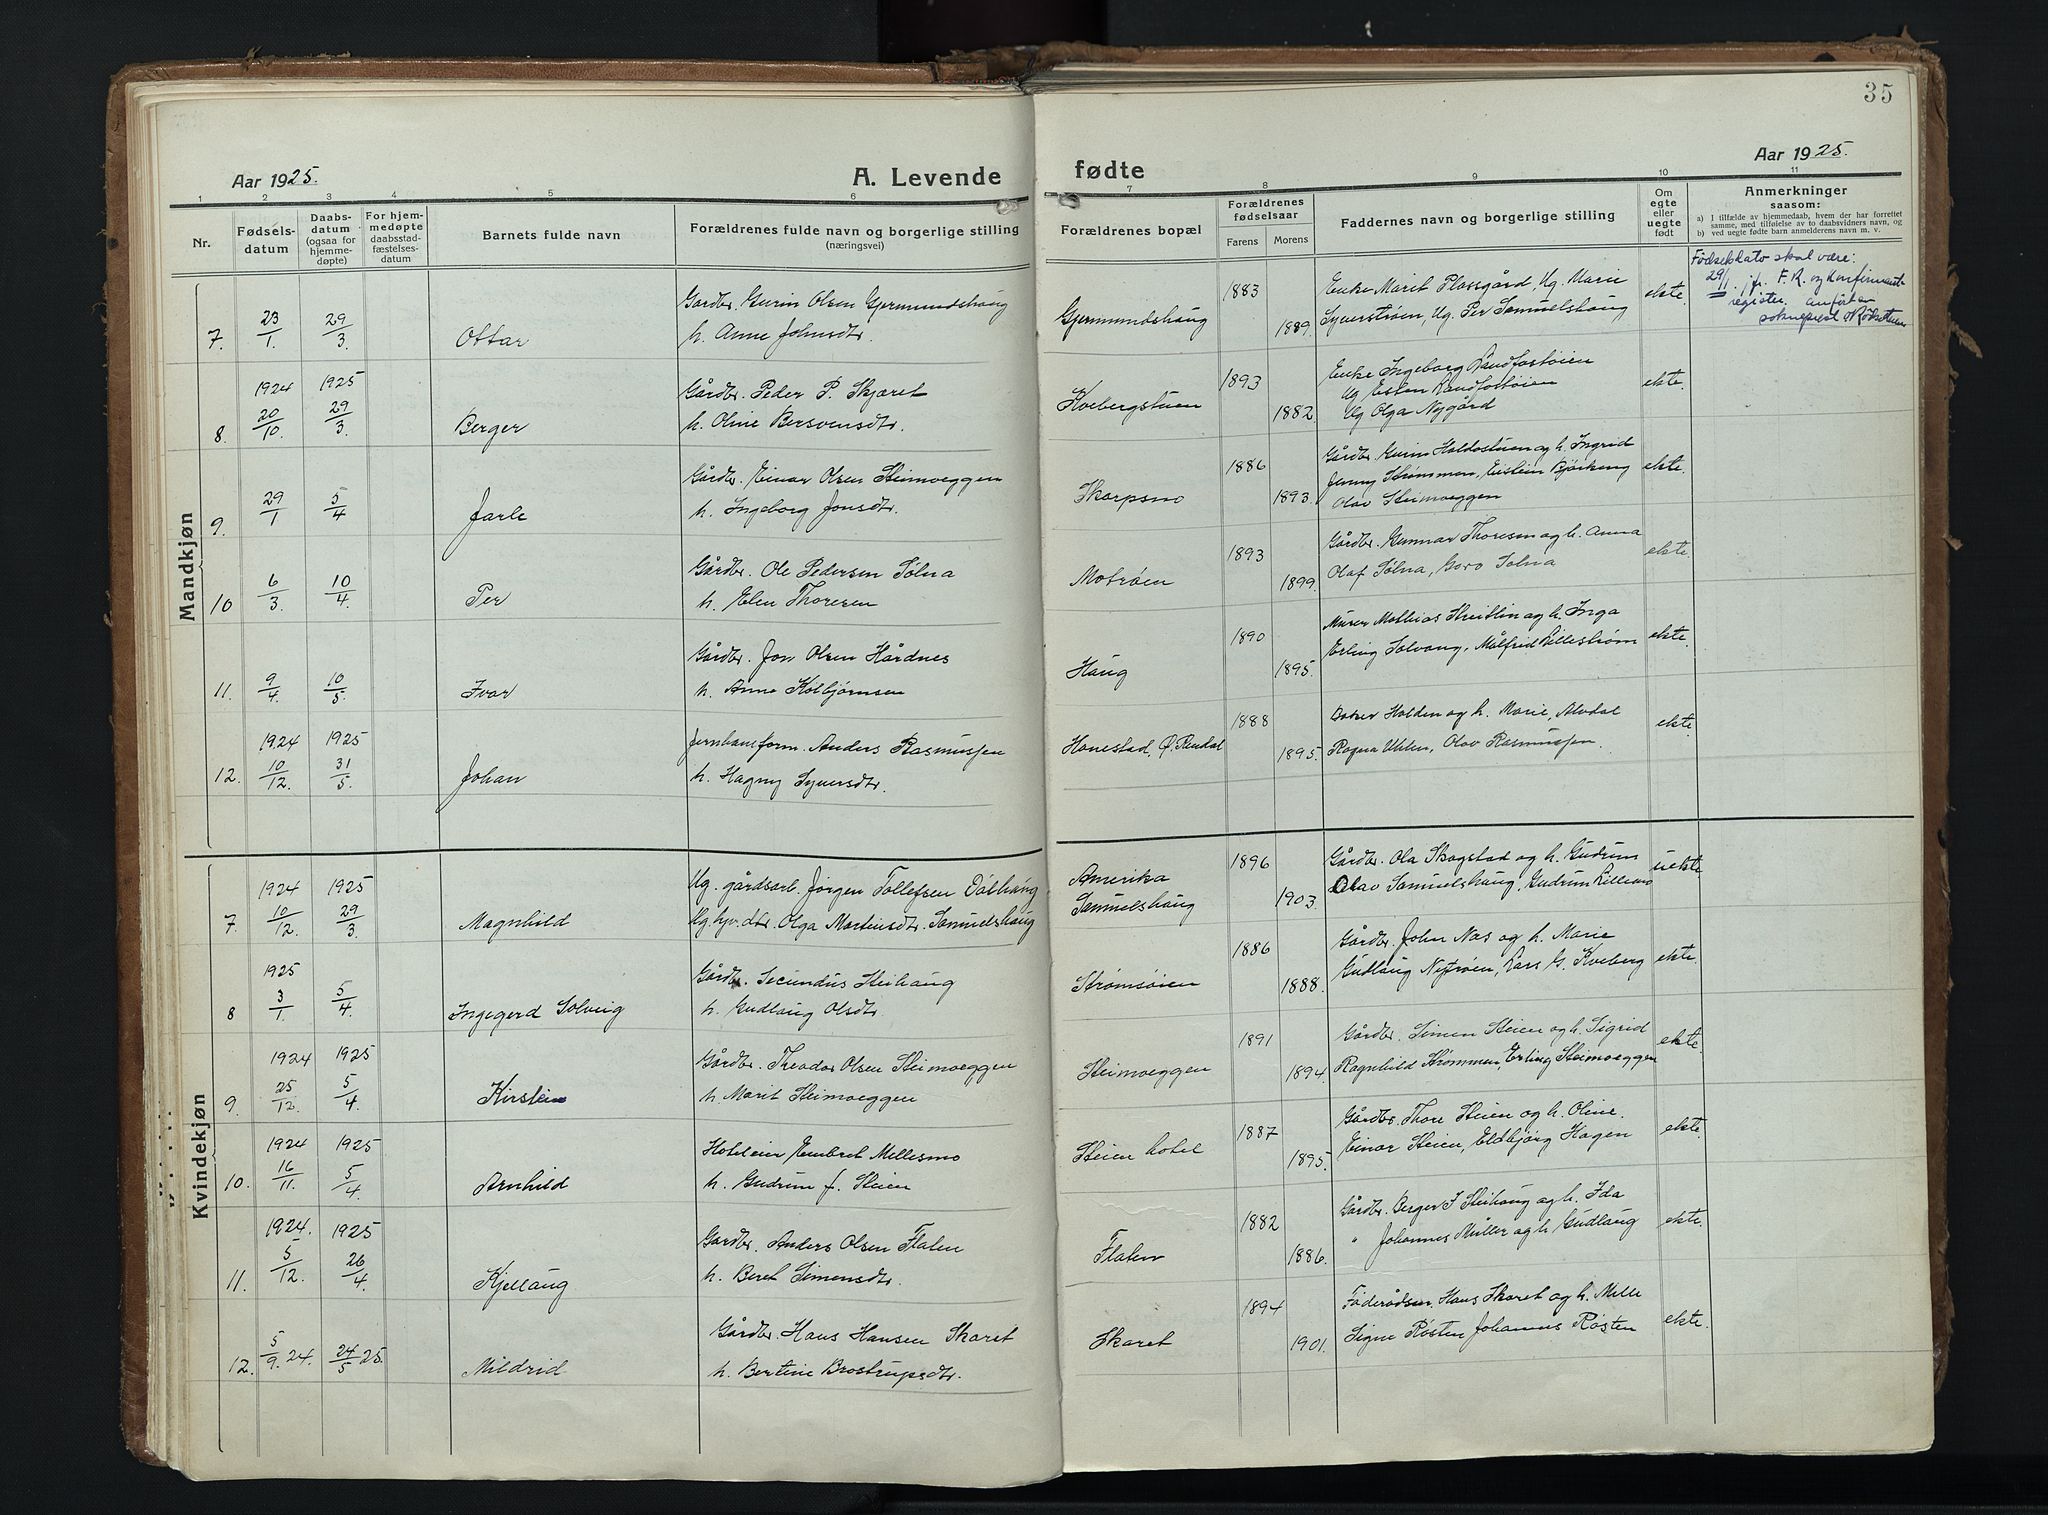 35
Aar 1925.
A. Levende
fødte
Aar 1925.
1 2 3 4 5 6 7 8 9 10 11
Nr.
Fødsels-
datum
Daabs-
datum
(ogsaa for
hjemme-
døpte)
For hjem-
medøpte
daabsstad-
fæstelses-
datum
Barnets fulde navn
Forældrenes fulde navn og borgerlige stilling
(næringsvei)
Forældrenes bopæl
Forældrenes
fødselsaar
Farens Morens
Faddernes navn og borgerlige stilling
Om
egte
eller
uegte
født
Anmerkninger
saasom:
a) I tilfælde av hjemmedaab, hvem der har forrettet
samme, med tilføielse av to daabsvidners navn, og
b) ved uegte fødte barn anmelderens navn m. v.
Mandkjøn
7. 23/1 29/3 Ottar
Gardbr. Gurin Olsen Gjermundshaug
h. Anne Johnsdtr.
Gjermundshaug 1883 1889.
Enke Marit Plassgård, Ug. Marie
Syverstrøen, Ug. Per Samuelshaug
ekte.
Fødselsdato skal være:
29/1. jfr. F.R. og konfirmant-
register. anført av
sokneprest
8. 1924 20/10. 1925 29/3. Berger
Gårdbr. Peder P. Skjæret
h. Oline Bersvensdtr.
Kvebergstuen 1893 1882.
Enke Ingeborg Randfostøien
Ug Esten Randfostøien
Ug Olga Nygård
ekte.
9. 29/1 5/4 Jarle
Gårdbr. Einar Olsen Steimoeggen
h. Ingeborg Jonsdtr.
Skarpsno 1886 1893.
Gårdbr. Gurin Haldostuen og h. Ingrid
Jenny Strømmen, Eistein Bjørkeng
Olav Steimoeggen
ekte.
10 6/3. 10/4. Per
Gårdbr. Ole Pedersen Sølna
h. Elen Thoresen
Motrøen 1893 1899.
Gårdbr. Gunnar Thoresen og h. Anna
Olaf Sølna, Goro Solna
ekte.
11. 9/4 10/5 Ivar
Gårdbr. Jon Olsen Hårdnes
h. Anna Kolbjørnsen
Haug 1890 1895.
Murer Mathias Streitlin og h. Inga
Erling Solvang, Målfrid Lillestrøm
ekte.
12. 1924 10/12. 1925 31/5. Johan
Jernbaneform. Anders Rasmussen
h. Hagny Syversdtr.
Hanestad, Ø. Rendal 1888 1895.
Baker Holden og h. Marie, Alvdal
Ragna Uhlen, Olav Rasmussen.
ekte.
Kvindekjøn
7. 1924 10/12. 1925 29/3. Magnhild
Ug. gårdsarb. Jörgen Tollefsen Dølhaug
Ug. hjv. dtr. Olga Martinsdtr. Samuelshaug
Amerika
Samuelshaug
1896 1903.
Gårdbr. Ola Skogstad og h. Gudrun
Olav Samuelshaug, Gudrun Lillemo
uekte.
8 1925 3/1. 5/4. Ingegerd Solveig
Gårdbr. Secundus Steihaug
h. Gudlaug Olsdtr.
Strømsøien 1886 1888.
Gårdbr. John Nas og h. Marie
Gudlaug Nytrøen, Lars G. Kveberg
ekte.
9. 1924 25/12. 1925 5/4. Kirsten
Gårdbr. Theodor Olsen Steimoeggen
h. Marit Steimoeggen
Steimoeggen 1891 1894.
Gårdbr. Simen Steien og h. Sigrid
Ragnhild Strømmen, Erling Steimoeggen
ekte.
10. 1924 16/11. 1925 5/4. Arnhild
Hoteleier Embret Mellesmo
h. Gudrun f. Steien
Steien hotel 1887 1895.
Gårdbr. Thore Steien og h. Oline.
Einar Steien, Eldbjörg Hagen
ekte.
11. 1924. 5/12. 1925 26/4. Kjellaug
Gardbr. Anders Olsen Flaten
h. Beret Simensdtr.
Flaten 1882 1886.
Gårdbr. Berger I Steihaug og h. Ida
" Johannes Müller og h. Gudlaug
ekte.
12. 5/9. 24. 24/5 25. Mildrid
Gårdbr. Hans Hansen Skaret
h. Bertine Brostrupsdtr.
Skaret 1894 1901.
Föderådsm. Hans Skaret og h. Mille
Signe Røsten Johannes Røsten
ekte.